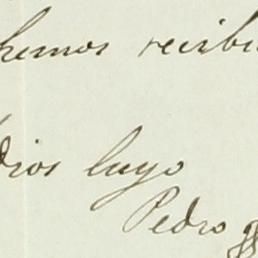 hemos recibi
dios luyo
Pedro